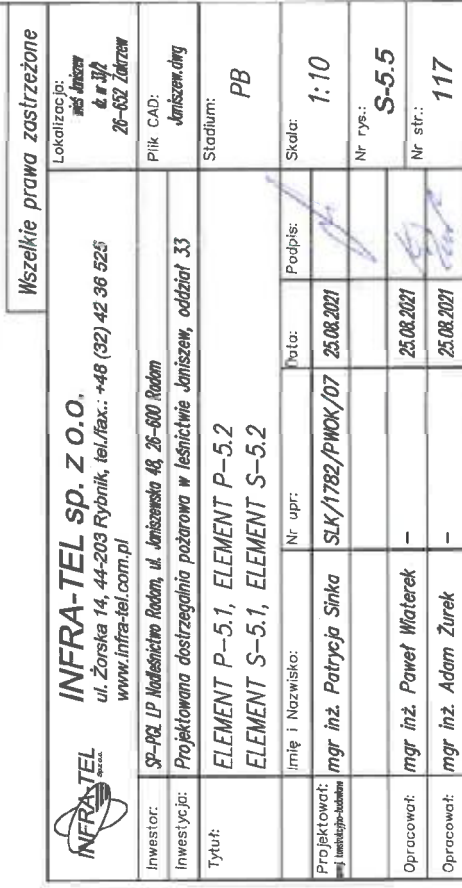 Wszelkie prawa zastrzeżone
INFRA-TEL
Sp. z o.o.
INFRA-TEL sp. z o.o.
ul. Żorska 14, 44-203 Rybnik, tel./fax.: +48 (32) 42 36 525
www.infra-tel.com.pl
Lokalizacja:
wieś Janiszew
dz. nr 33/2
26-652 Zakrzew
Inwestor: SP-PGL LP Nadleśnictwo Radom, ul. Janiszewska 48, 26-600 Radom
Plik CAD:
Janiszew.dwg
Inwestycja: Projektowana dostrzegalnia pożarowa w leśnictwie Janiszew, oddział 33
Tytuł: ELEMENT P-5.1, ELEMENT P-5.2
ELEMENT S-5.1, ELEMENT S-5.2
Stadium:
PB
Imię i Nazwisko: Nr upr: Data: Podpis:
Skala:
1:10
Projektował: mgr inż. Patrycja Sinka SLK/1782/PWOK/07 25.08.2021
upr. konstrukcyjno-budowlane
Nr rys.:
S-5.5
Opracował: mgr inż. Paweł Wiaterek – 25.08.2021
Nr str.:
117
Opracował: mgr inż. Adam Żurek – 25.08.2021